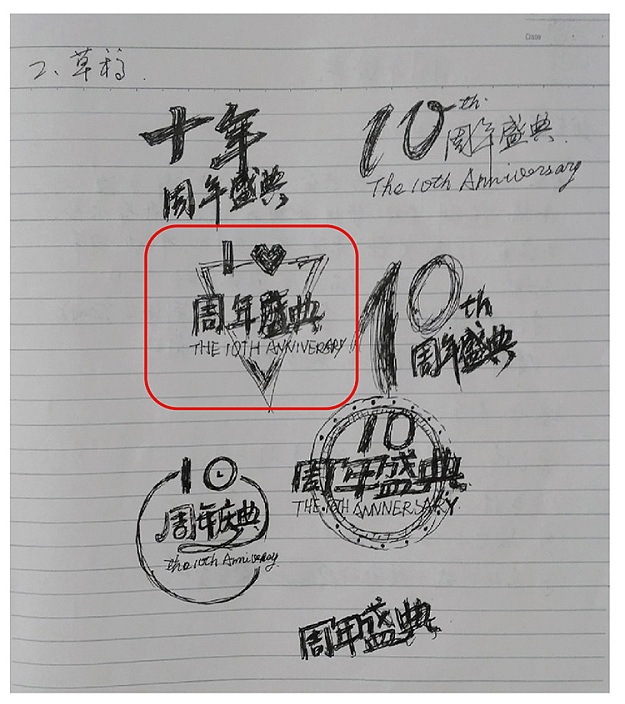 Date
2、草稿.
十年
周年盛典
10th
周年盛典.
The 10th Anniversary
1
周年盛典
THE 10TH ANNIVERSARY
10th
周年盛典
10
周年盛典
THE 10TH ANNNERSARY.
10
周年庆典
the 10th Anniversary
周年盛典